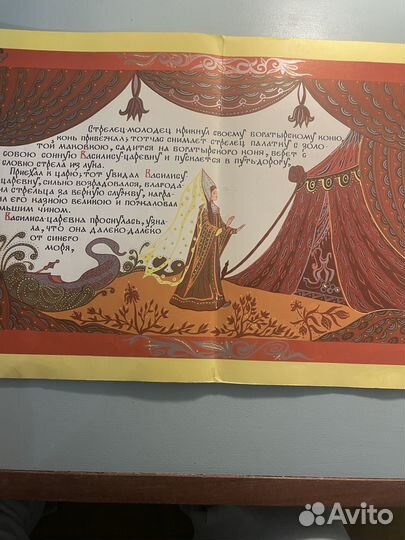 Стрелец-молодец крикнул своему богатырскому коню,
конь прибежал; тотчас снимает стрелец палатку с золо-
той маковкою, садится на богатырского коня, берет с
собою сонную Василису-царевну и пускается в путь-дорогу,
словно стрела из лука.
Приехал к царю; тот увидал Василису
царевну, сильно возрадовался, благода-
стрельца за верную службу, награ-
его казною великою и пожаловал
ьшим чином.
Василиса-царевна проснулась, узна-
ла, что она далеко-далеко
от синего
моря,
Avito